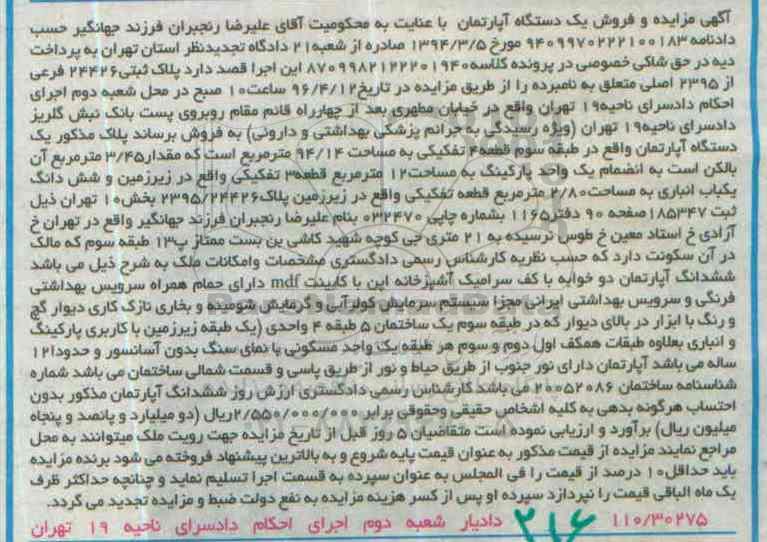 آگهی مزایده و فروش یک دستگاه آپارتمان با عنایت به محکومیت آقای علیرضا رنجبران فرزند جهانگیر حسب
دادنامه ۹۴۰۹۹۷۰۲۲۲۱۰۰۱۸۳ مورخ ۱۳۹۴/۳/۵ صادره از شعبه ۲۱ دادگاه تجدیدنظر استان تهران به پرداخت
دیه در حق شاکی خصوصی در پرونده کلاسه ۸۷۰۹۹۸۲۱۲۲۲۰۱۹۴۰ این اجرا قصد دارد پلاک ثبتی ۲۴۴۲۶ فرعی
از ۲۳۹۵ اصلی متعلق به نامبرده را از طریق مزایده در تاریخ ۹۶/۴/۱۲ ساعت ۱۰ صبح در محل شعبه دوم اجرای
احکام دادسرای ناحیه ۱۹ تهران واقع در خیابان مطهری بعد از چهارراه قائم مقام روبروی پست بانک نبش گلریز
دادسرای ناحیه ۱۹ تهران (ویژه رسیدگی به جرائم پزشکی بهداشتی و داروئی) به فروش برساند پلاک مذکور یک
دستگاه آپارتمان واقع در طبقه سوم قطعه ۴ تفکیکی به مساحت ۹۴/۱۴ مترمربع است که مقدار ۳/۴۵ مترمربع آن
بالکن است به انضمام یک واحد پارکینگ به مساحت ۱۲ مترمربع قطعه ۳ تفکیکی واقع در زیرزمین و شش دانگ
یکباب انباری به مساحت ۲/۸۰ مترمربع قطعه تفکیکی واقع در زیرزمین پلاک ۲۳۹۵/۲۴۴۲۶ بخش ۱۰ تهران ذیل
ثبت ۱۸۵۳۴۷ صفحه ۹۰ دفتر ۱۱۶۵ بشماره چاپی ۰۳۲۴۷۰ بنام علیرضا رنجبران فرزند جهانگیر واقع در تهران خ
آزادی خ استاد معین خ طوس نرسیده به ۲۱ متری جی کوچه شهید کاشی بن بست ممتاز پ ۱۳ طبقه سوم که مالک
در آن سکونت دارد که حسب نظریه کارشناس رسمی دادگستری مشخصات وامکانات ملک به شرح ذیل می باشد
ششدانگ آپارتمان دو خوابه با کف سرامیک آشپزخانه اپن با کابینت mdf دارای حمام همراه سرویس بهداشتی
فرنگی و سرویس بهداشتی ایرانی مجزا سیستم سرمایش کولرآبی و گرمایش شومینه و بخاری نازک کاری دیوار گچ
و رنگ با ابزار در بالای دیوار که در طبقه سوم یک ساختمان ۵ طبقه ۴ واحدی (یک طبقه زیرزمین با کاربری پارکینگ
و انباری بعلاوه طبقات همکف اول دوم و سوم هر طبقه یک واحد مسکونی با نمای سنگ بدون آسانسور و حدودا ۱۲
ساله می باشد آپارتمان دارای نور جنوب از طریق حیاط و نور از طریق پاسی و قسمت شمالی ساختمان می باشد شماره
شناسنامه ساختمان ۲۰۰۵۲۰۸۶ می باشد کارشناس رسمی دادگستری ارزش روز ششدانگ آپارتمان مذکور بدون
احتساب هرگونه بدهی به کلیه اشخاص حقیقی وحقوقی برابر ۲/۵۵۰/۰۰۰/۰۰۰ ریال (دو میلیارد و پانصد و پنجاه
میلیون ریال) برآورد و ارزیابی نموده است متقاضیان ۵ روز قبل از تاریخ مزایده جهت رویت ملک میتوانند به محل
مراجع نمایند مزایده از قیمت مذکور به عنوان قیمت پایه شروع و به بالاترین پیشنهاد فروخته می شود برنده مزایده
باید حداقل ۱۰ درصد از قیمت را فی المجلس به عنوان سپرده به قسمت اجرا تسلیم نماید و چنانچه حداکثر ظرف
یک ماه الباقی قیمت را نپردازد سپرده او پس از کسر هزینه مزایده به نفع دولت ضبط و مزایده تجدید می گردد.
۱۱۰/۳۰۲۷۵ ۲۱۶ دادیار شعبه دوم اجرای احکام دادسرای ناحیه ۱۹ تهران